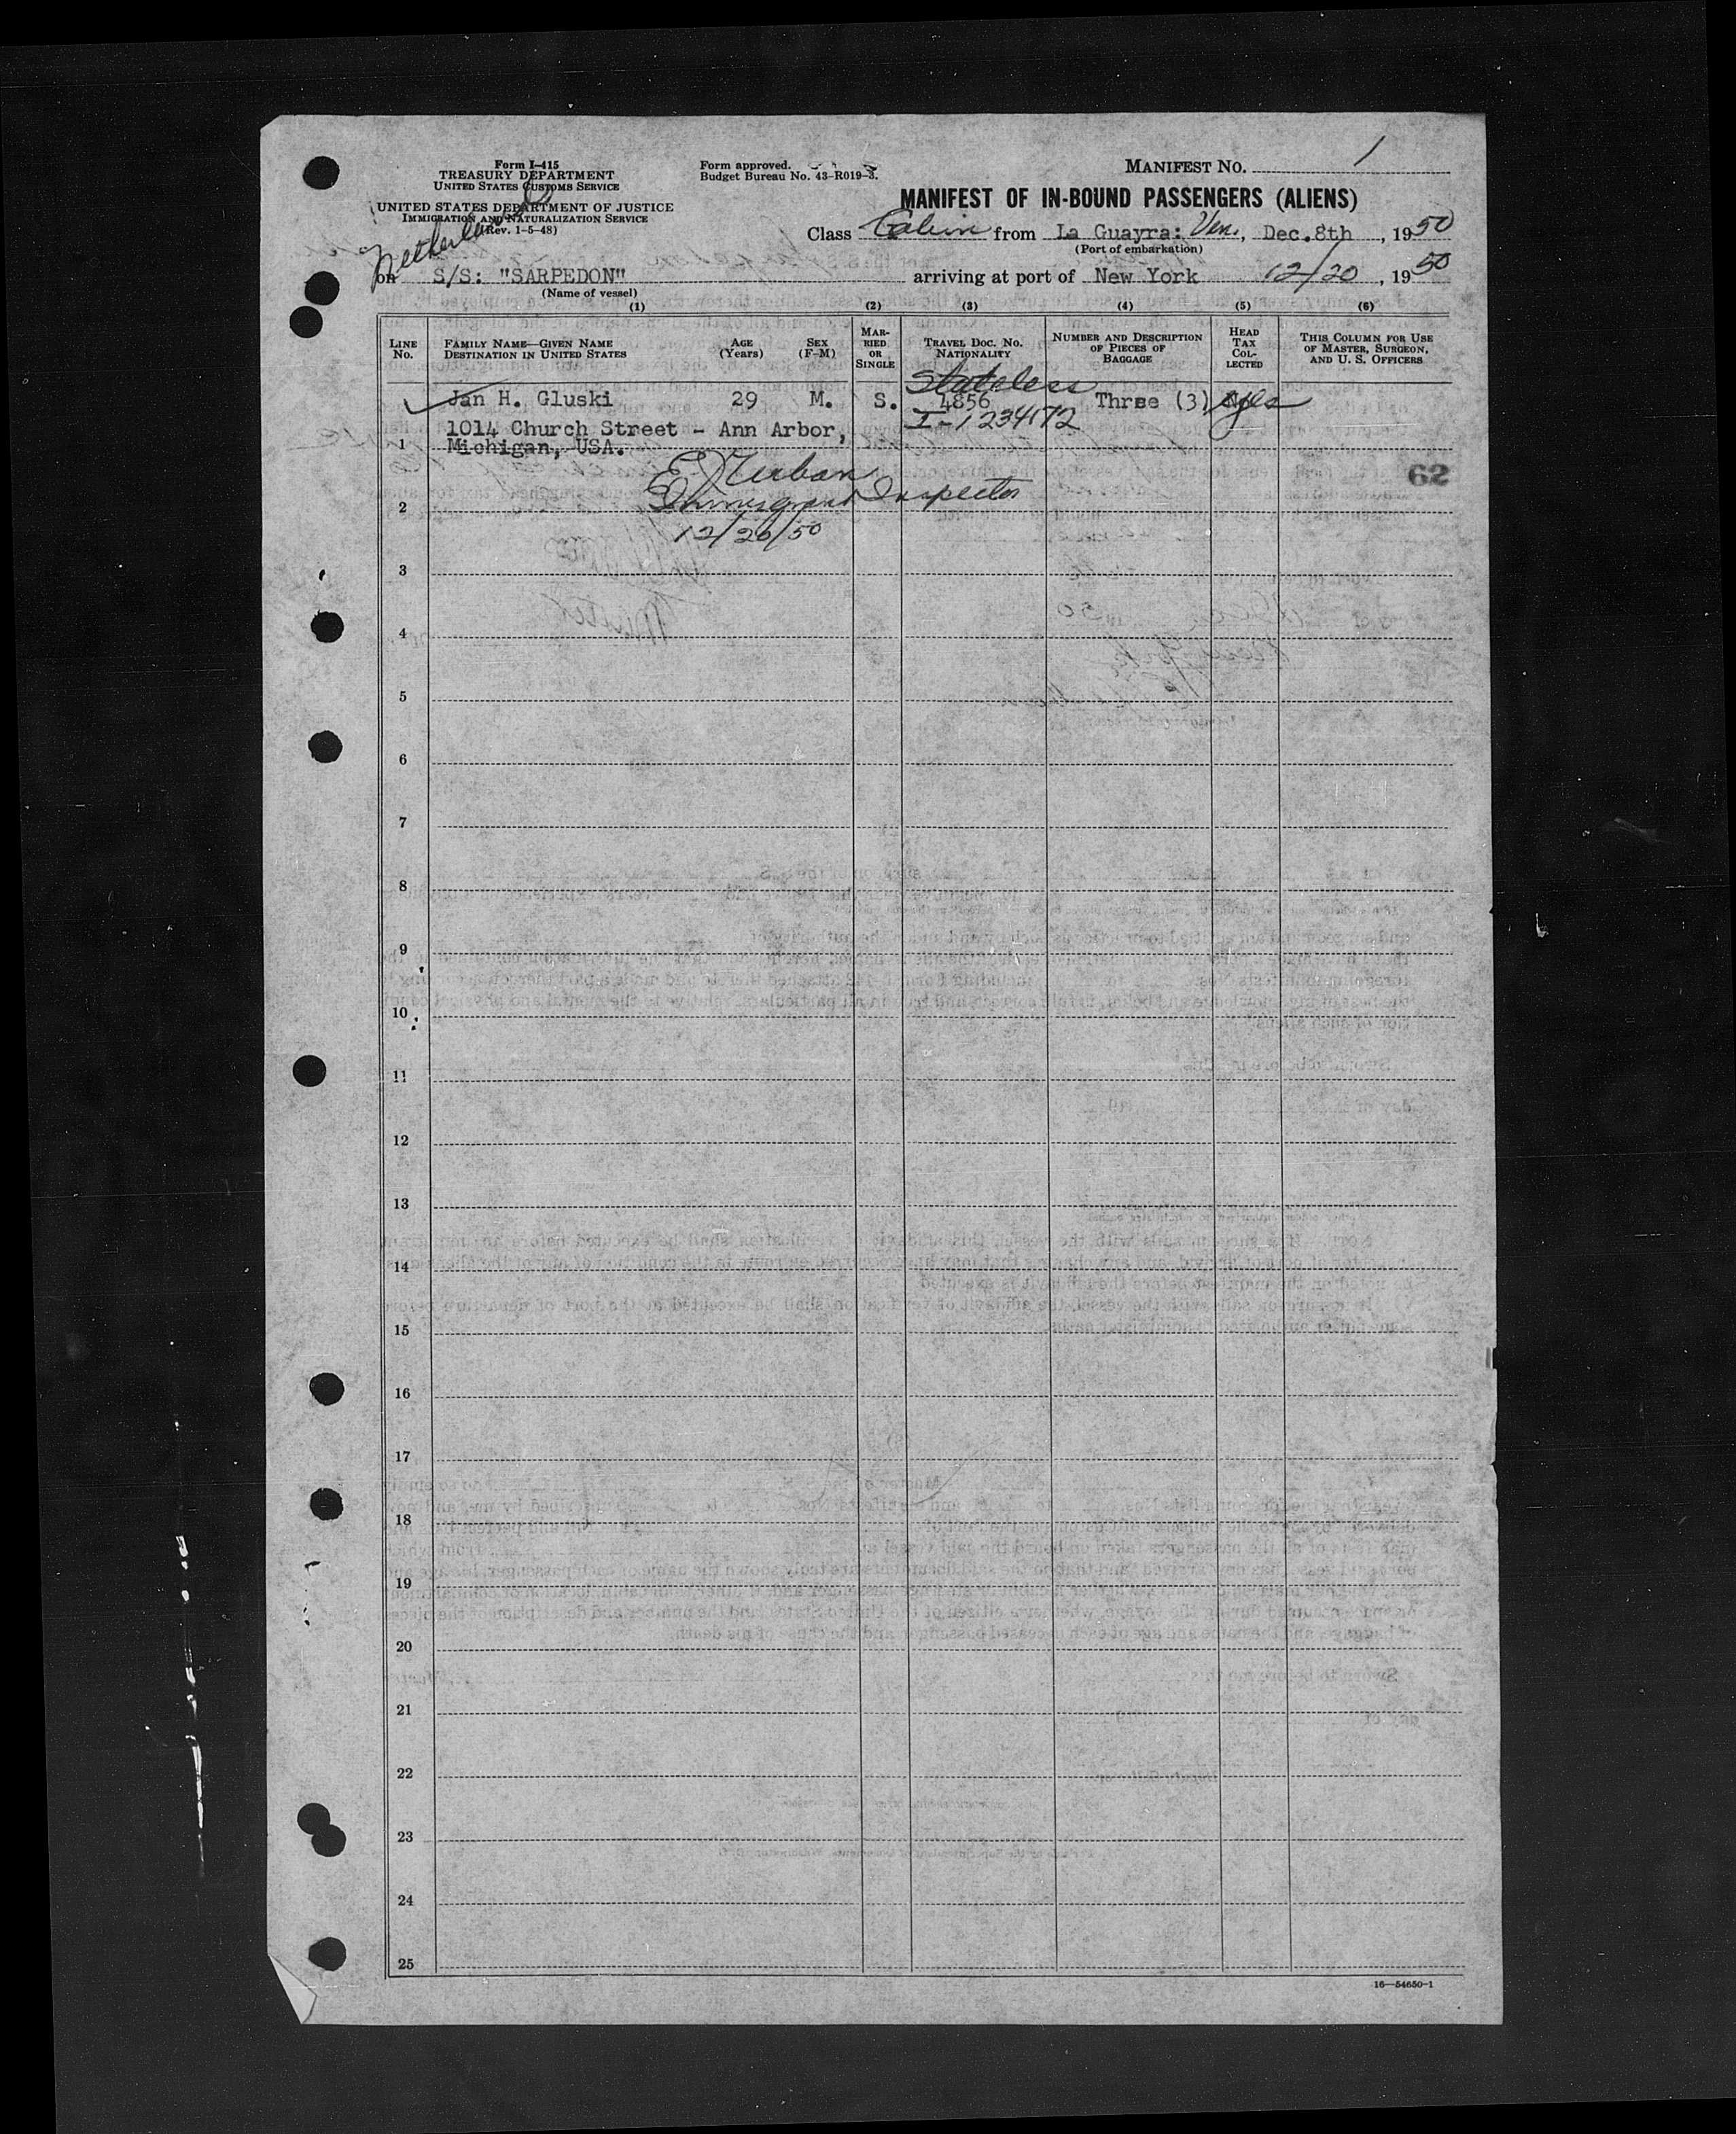 Form I-415
TREASURY DEPARTMENT
UNITED STATES CUSTOMS SERVICE
UNITED STATES DEPARTMENT OF JUSTICE
IMMIGRATION AND NATURALIZATION SERVICE
(Rev. 1-5-48)
Form approved.
Budget Bureau No. 43-R019-3.
MANIFEST NO. 1
MANIFEST OF IN-BOUND PASSENGERS (ALIENS)
Class Cabin from La Guayra: Ven., Dec.8th, 1950
(Port of embarkation)
Netherland
on S/S: "SARPEDON" arriving at port of New York 12/20, 1950
(Name of vessel)
(1) (2) (3) (4) (5) (6)
LINE No. FAMILY NAME—GIVEN NAME DESTINATION IN UNITED STATES AGE (Years) SEX (F-M) MARRIED OR SINGLE TRAVEL DOC. NO. NATIONALITY NUMBER AND DESCRIPTION OF PIECES OF BAGGAGE HEAD TAX COLLECTED THIS COLUMN FOR USE OF MASTER, SURGEON, AND U. S. OFFICERS
Stateless
Jan H. Gluski 29 M. S. 4856 Three (3) Yes
I-1234172
1014 Church Street - Ann Arbor,
1 Michigan, USA.
E D Urban
62
Immigrant Inspector
2
12/20/50
3
4
5
6
7
8
9
10
11
12
13
14
15
16
17
18
19
20
21
22
23
24
25
16—54650-1